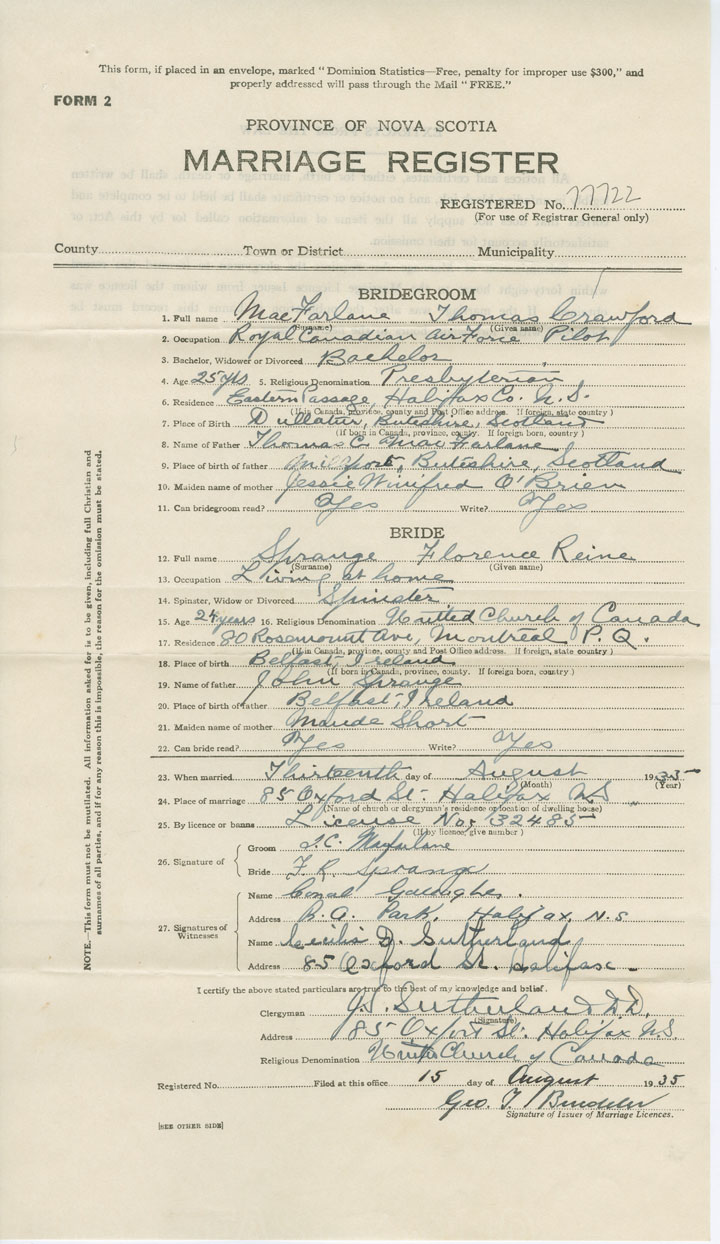 This form, if placed in an envelope, marked "Dominion Statistics—Free, penalty for improper use $300," and
properly addressed will pass through the Mail "FREE."
FORM 2
PROVINCE OF NOVA SCOTIA
MARRIAGE REGISTER
REGISTERED No. 77722
(For use of Registrar General only)
County Town or District Municipality
BRIDEGROOM
1. Full name MacFarlane Thomas Crawford
(Surname) (Given name)
2. Occupation Royal Canadian Air Force Pilot
3. Bachelor, Widower or Divorced Bachelor
4. Age 25 yrs 5. Religious Denomination Presbyterian
6. Residence Eastern Passage, Halifax Co. N.S.
(If in Canada, province, county and Post Office address. If foreign, state country)
7. Place of Birth Dullatur, Buteshire, Scotland
(If born in Canada, province, county. If foreign born, country)
8. Name of Father Thomas C. MacFarlane
9. Place of birth of father Millport, Buteshire, Scotland
10. Maiden name of mother Jessie Winifred O'Brien
11. Can bridegroom read? Yes Write? Yes
BRIDE
12. Full name Sprange Florence Reine
(Surname) (Given name)
13. Occupation Living at home
14. Spinster, Widow or Divorced Spinster
15. Age 24 years 16. Religious Denomination United Church of Canada
17. Residence 80 Rosemount Ave, Montreal P.Q.
(If in Canada, province, county and Post Office address. If foreign, state country)
18. Place of birth Belfast, Ireland
(If born in Canada, province, county. If foreign born, country)
19. Name of father John Sprange
20. Place of birth of father Belfast, Ireland
21. Maiden name of mother Maude Short
22. Can bride read? Yes Write? Yes
23. When married Thirteenth day of August 1935
(Month) (Year)
24. Place of marriage 85 Oxford St. Halifax NS
(Name of church or clergyman's residence or location of dwelling house)
25. By licence or banns License No. 132485
(If by licence, give number)
26. Signature of
Groom T.C. Macfarlane
Bride F.R. Sprange
27. Signatures of Witnesses
Name Conal
Address R.A. Park, Halifax, N.S
Name Cecilia D. Sutherland
Address 85 Oxford St. Halifax
I certify the above stated particulars are true to the best of my knowledge and belief.
Clergyman J.S. Sutherland D.D.
(Signature)
Address 85 Oxford St. Halifax N.S.
Religious Denomination United Church of Canada
Registered No. Filed at this office 15 day of August 1935
Geo. T.
Signature of Issuer of Marriage Licences.
[SEE OTHER SIDE]
NOTE.—This form must not be mutilated. All information asked for is to be given, including full Christian and
surnames of all parties, and if for any reason this is impossible, the reason for the omission must be stated.